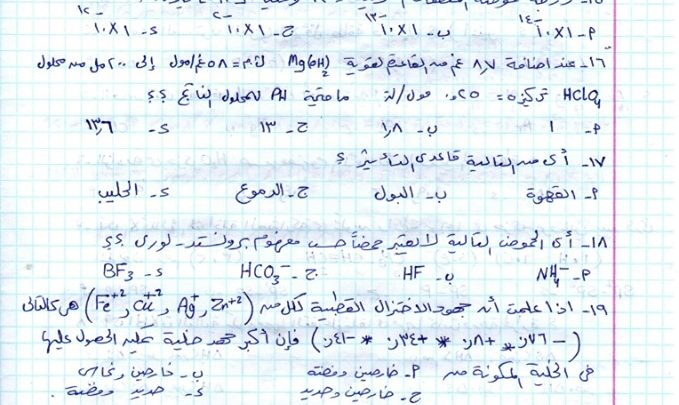 أ- ١×١٠⁻¹⁴ ب- ١×١٠⁻¹³ ج- ١×١٠⁻² د- ١×١٠⁻¹²
١٦- عند اضافة ٨,٧ غم من القاعدة القوية Mg(OH)₂ ك.م = ٥٨ غم/مول إلى ٢٠٠ مل من محلول
HClO₄ تركيزه = ٠,٢٥ مول/لتر ما قيمة PH للمحلول الناتج ؟؟
أ- ١ ب- ١,٨ ج- ١٣ د- ١٣,٦
١٧- أي من التالية قاعدي التأثير ؟
أ- القهوة ب- البول ج- الدموع د- الحليب
١٨- أي الحموض التالية لا يعتبر حمضاً حسب مفهوم برونستد - لوري ؟؟
أ- NH₄⁻ ب- HF ج- HCO₃⁻ د- BF₃
١٩- اذا علمت أن جهود الاختزال القطبية لكل من (Zn⁺² و Ag⁺ و Cu⁺² و Fe⁺²) هي كالتالي
(-٠,٧٦ * +٠,٨ * +٠,٣٤ * -٠,٤١) فإن أكبر جهد خلية يمكن الحصول عليها
في الخلية المكونة من أ- خارصين وفضة ب- خارصين ونحاس
ج- خارصين وحديد د- حديد وفضة